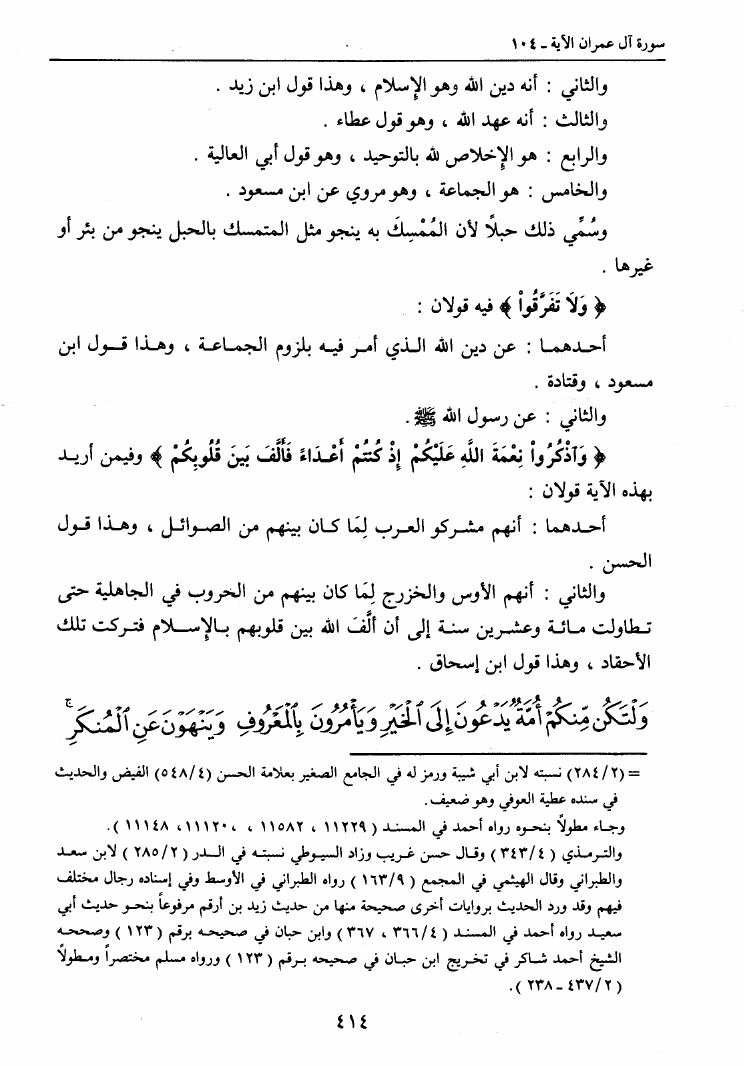 سورة آل عمران الآية ـ ١٠٤
والثاني : أنه دين الله وهو الإسلام ، وهذا قول ابن زيد .
والثالث : أنه عهد الله ، وهو قول عطاء .
والرابع : هو الإخلاص لله بالتوحيد ، وهو قول أبي العالية .
والخامس : هو الجماعة ، وهو مروي عن ابن مسعود .
وسُمِّي ذلك حبلاً لأن المُمْسِكَ به ينجو مثل المتمسك بالحبل ينجو من بئر أو
غيرها .
﴿ وَلَا تَفَرَّقُواْ ﴾ فيه قولان :
أحدهما : عن دين الله الذي أمر فيه بلزوم الجماعة ، وهذا قول ابن
مسعود ، وقتادة .
والثاني : عن رسول الله ﷺ .
﴿ وَآذْكُرُواْ نِعْمَةَ اللَّهِ عَلَيْكُمْ إِذْ كُنتُمْ أَعْدَاءً فَأَلَّفَ بَينَ قُلُوبِكُمْ ﴾ وفيمن أريد
بهذه الآية قولان :
أحدهما : أنهم مشركو العرب لِمَا كان بينهم من الصوائل ، وهذا قول
الحسن .
والثاني : أنهم الأوس والخزرج لِمَا كان بينهم من الخروب في الجاهلية حتى
تطاولت مائة وعشرين سنة إلى أن ألَّفَ الله بين قلوبهم بالإسلام فتركت تلك
الأحقاد ، وهذا قول ابن إسحاق .
وَلْتَكُن مِّنكُمْ أُمَّةٌ يَدْعُونَ إِلَى ٱلْخَيْرِ وَيَأْمُرُونَ بِٱلْمَعْرُوفِ وَيَنْهَوْنَ عَنِ ٱلْمُنكَرِ ۚ
= (٢٨٤/٢) نسبته لابن أبي شيبة ورمز له في الجامع الصغير بعلامة الحسن (٥٤٨/٤) الفيض والحديث
في سنده عطية العوفي وهو ضعيف .
وجاء مطولاً بنحوه رواه أحمد في المسند ( ١١٢٢٩ ، ١١٥٨٢ ، ، ١١١٢٠، ١١١٤٨ ).
والترمذي ( ٣٤٣/٤ ) وقال حسن غريب وزاد السيوطي نسبته في الدر ( ٢٨٥/٢ ) لابن سعد
والطبراني وقال الهيثمي في المجمع ( ١٦٣/٩ ) رواه الطبراني في الأوسط وفي إسناده رجال مختلف
فيهم وقد ورد الحديث بروايات أخرى صحيحة منها من حديث زيد بن أرقم مرفوعاً بنحو حديث أبي
سعيد رواه أحمد في المسند ( ٣٦٦/٤ ، ٣٦٧ ) وابن حبان في صحيحه برقم ( ١٢٣ ) وصححه
الشيخ أحمد شاكر في تخريج ابن حبان في صحيحه برقم ( ١٢٣ ) ورواه مسلم مختصراً ومطولاً
( ٤٣٧/٢ ـ ٢٣٨ ).
٤١٤